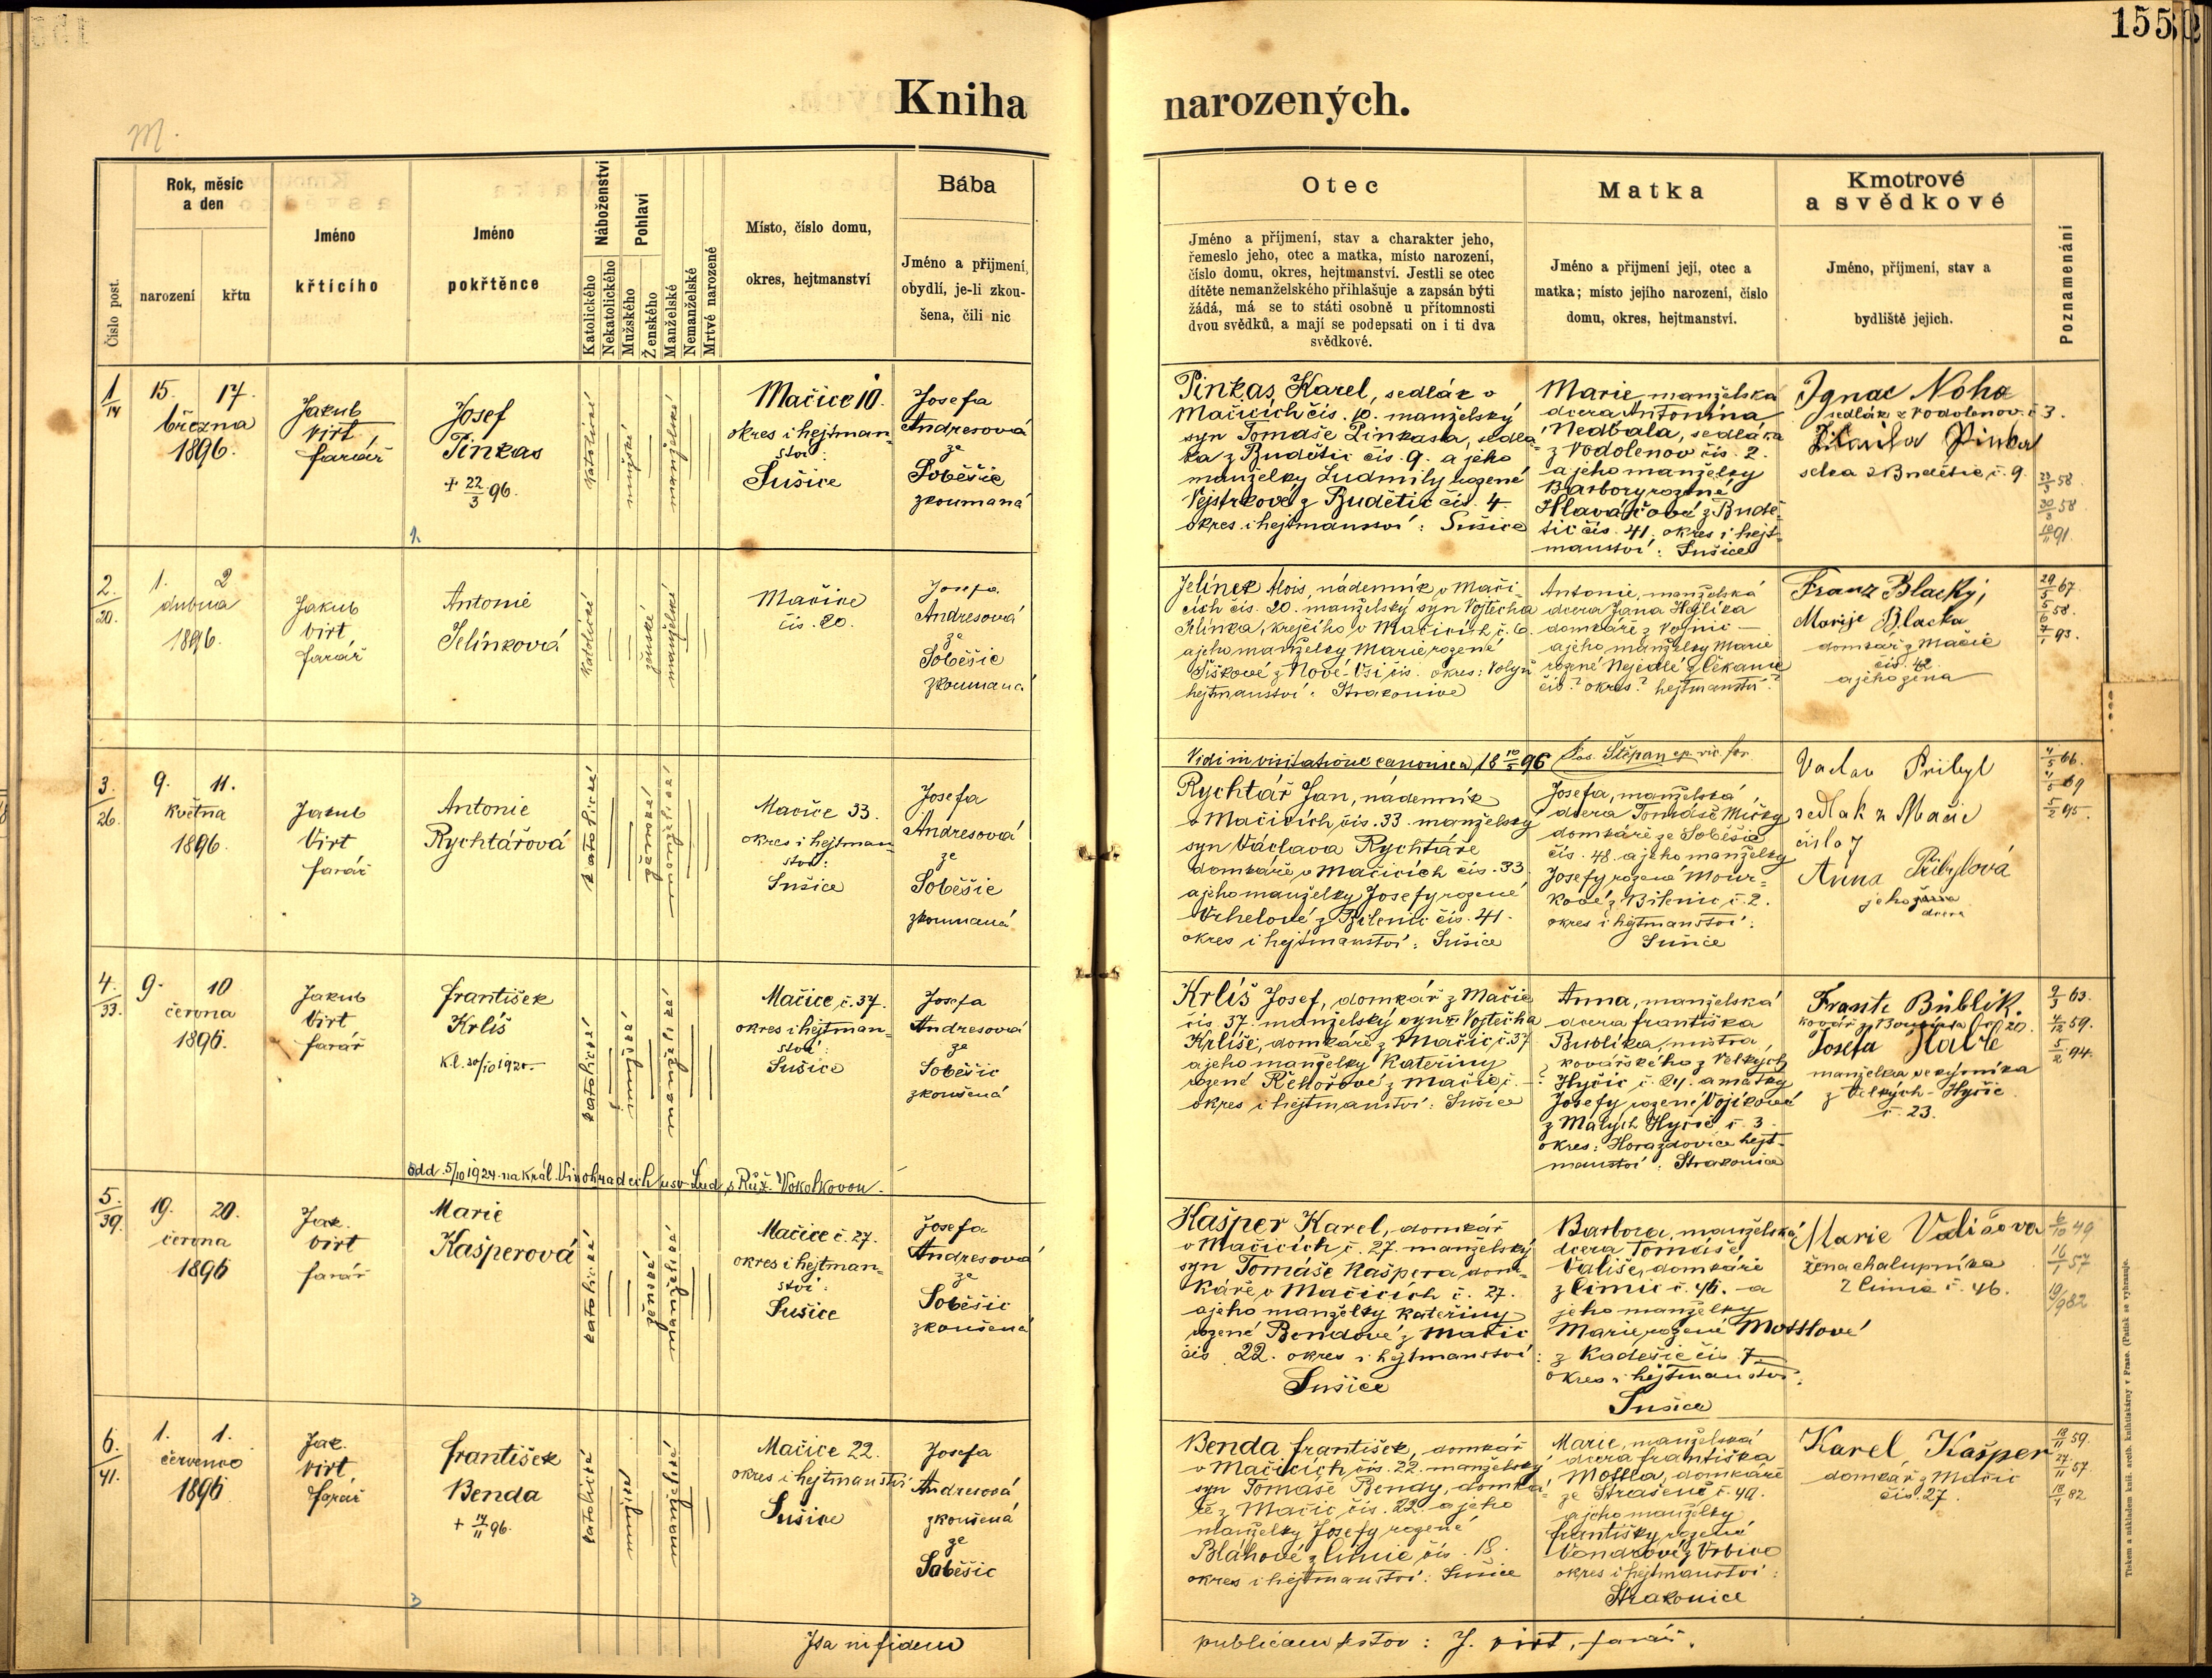 155
Kniha narozených.
M.
Číslo post.
Rok, měsíc
a den
narození
křtu
Jméno
křticího
Jméno
pokřtěnce
Náboženství
Katolického
Nekatolického
Pohlaví
Mužského
Ženského
Manželské
Nemanželské
Mrtvé narozené
Místo, číslo domu,
okres, hejtmanství
Bába
Jméno a přijmení,
obydlí, je-li zkou-
šena, čili nic
Otec
Jméno a příjmení, stav a charakter jeho,
řemeslo jeho, otec a matka, místo narození,
číslo domu, okres, hejtmanství. Jestli se otec
dítěte nemanželského přihlašuje a zapsán býti
žádá, má se to státi osobně u přítomnosti
dvou svědků, a mají se podepsati on i ti dva
svědkové.
Matka
Jméno a přijmení její, otec a
matka; místo jejího narození, číslo
domu, okres, hejtmanství.
Kmotrové
a svědkové
Jméno, příjmení, stav a
bydliště jejich.
Poznamenání
1
14
15. 17.
března
1896.
Jakub
Virt
farář
Josef
Pinkas
+ 22/3 96.
1.
katolické
mužské
manželské
Mačice 10.
okres i hejtman-
ství:
Sušice
Josefa
Andresová
ze
Soběšic
zkoumaná
Pinkas Karel, sedlák v
Mačicích čís. 10. manželský
syn Tomáše Pinkasa, sedlá-
ka z Budětic čís. 9. a jeho
manželky Ludmily rozené
Vejstrkové z Budětic čís. 4.
okres i hejtmanství: Sušice
Marie manželská
dcera Antonína
Nedbala, sedláka
z Vodolenov čís. 2.
a jeho manželky
Barbory rozené
Hlaváčové z Budě-
tic čís. 41. okres i hejt-
manství: Sušice
Ignac Noha
sedlák z Vodolenov. č 3.
selka z Budětic, č. 9.
22/3 58
30/3 58
10/11 91.
2.
20.
1. 2
dubna
1896.
Jakub
Virt
farář
Antonie
Jelínková
katolické
ženské
manželské
Mačice
čís. 20.
Josefa
Andresová
ze
Soběšic
zkoumaná
Jelínek Alois, nádenník v Mači-
cích čís. 20. manželský syn Vojtěcha
Jelínka, krejčího v Mačicích č. 6.
a jeho manželky Marie rozené
Šiškové z Nové-Vsi čís. okres: Volyň
hejtmanství: Strakonice
Antonie, manželská
dcera Jana
domkáře z Vojnic —
a jeho manželky Marie
rozené Nejedlé z Čkanic
čís? okres? hejtmanství?
Franz Blacký,
Marije Blacka
domkář z Mačic
čís. 42.
a jeho žena
29/5 67
5/5 58.
7/1 93.
Vidi in visitatione canonica 18 10/5 96 Jos. Štěpan ep. vic. for.
3.
26.
9. 11.
května
1896.
Jakub
Virt
farář
Antonie
Rychtářová
katolické
ženské
manželské
Mačice 33.
okres i hejtman-
ství:
Sušice
Josefa
Andresová
ze
Soběšic
zkoumaná
Rychtář Jan, nádenník
v Mačicích čís. 33. manželský
syn Václava Rychtáře
domkáře v Mačicích čís. 33.
a jeho manželky Josefy rozené
Vrhelové z Bílenic čís. 41.
okres i hejtmanství: Sušice
Josefa, manželská
dcera Tomáše Mičky
domkáře ze Soběšic
čís. 48. a jeho manželky
Josefy rozené Mour-
kové z Bílenic č. 2.
okres i hejtmanství:
Sušice
Vaclav Pribyl
sedlak z Mačic
čislo 7
Anna Pribylová
jeho žena
dcera
4/5 66.
4/5 69
5/2 95.
4.
33.
9. 10
června
1896.
Jakub
Virt
farář
František
Krliš
K.l. 20/10 1920
katolické
mužské
manželské
Mačice, č. 37.
okres i hejtman-
ství:
Sušice
Josefa
Andresová
ze
Soběšic
zkoušená
odd. 5/10 1924 na Král. Vinohradech u sv. Lud. s Růž. Vokolkovou.
Krliš Josef, domkář z Mačic
čís. 37. manželský syn Vojtěcha
Krliše, domkáře z Mačic, č. 37
a jeho manželky Kateřiny
rozené Řehořové z Mačic č. —?
okres i hejtmanství: Sušice
Anna, manželská
dcera františka
Bublíka, mistra
kovářského z Velkých
Hyčic č. 24. a matky
Josefy rozené Vojíkové
z Malých Hyčic č. 3.
okres: Horažďovice hejt-
manství: Strakonice
Frant. Büblik.
kovář
Josefa
manželka
z Velkých-Hyčic
č. 23.
9/3 63.
4/12 59.
5/2 94.
5.
39.
19. 20.
června
1896
Jak.
Virt
farář
Marie
Kašperová
katolické
ženské
manželské
Mačice č. 27.
okres i hejtman-
ství:
Sušice
Josefa
Andresová
ze
Soběšic
zkoušená
Kašper Karel, domkář
v Mačicích č. 27. manželský
syn Tomáše Kašpera, dom-
káře v Mačicích č. 27.
a jeho manželky Kateřiny
rozené Bendové z Mačic
čís 22. okres i hejtmanství:
Sušice
Barbora, manželská
dcera Tomáše
Vališe, domkáře
z Čimic č. 46. a
jeho manželky
Marie, rozené Mottlové
z Kadešic čís. 7
okres i hejtmanství:
Sušice
Marie Vališova
žena chalupníka
z Čimic č. 46.
6/10 49
16/1 57
19/9 82
6.
41.
1. 1.
července
1896
Jak.
Virt
farář
František
Benda
+ 14/11 96.
3
katolické
mužské
manželské
Mačice 22.
okres i hejtmanství
Sušice
Josefa
Andresová
zkoušená
ze
Soběšic
Benda František, domkář
v Mačicích, čís. 22. manželský
syn Tomáše Bendy, domká-
ře z Mačic čís. 22 a jeho
manželky Josefy rozené
Bláhové z Čimic čís. 18.
okres i hejtmanství: Sušice
Marie, manželská
dcera františka
Mottla, domkáře
ze Strašené č. 49.
a jeho manželky
františky rozené
okres i hejtmanství:
Strakonice
Karel Kašper
domkář z Mačic
čís. 27.
18/11 59.
27/11 57
18/1 82
Ita in fidem publicam testor: J. Virt, farář.